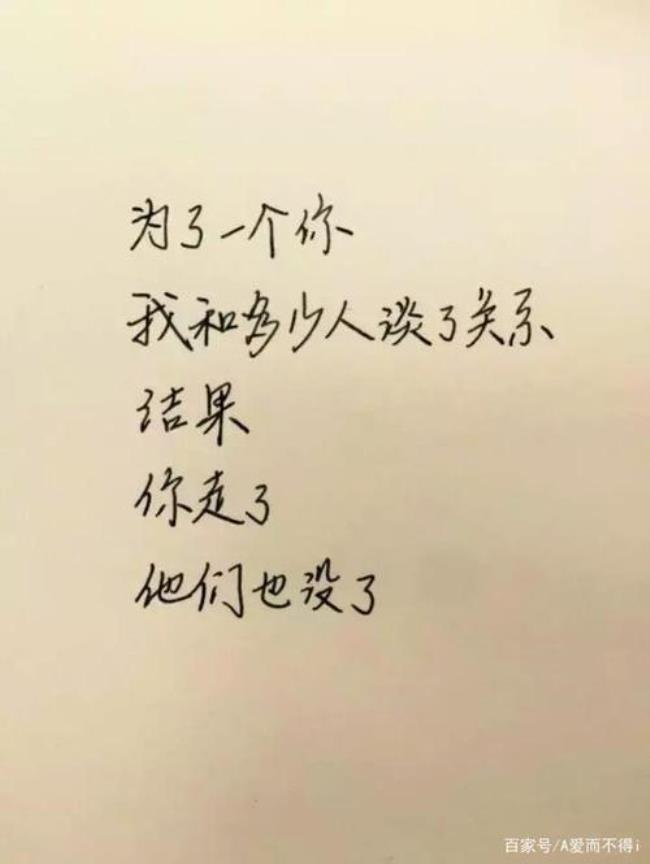 为了一个你
我和多少人谈了关系
结果
你走了
他们也没了
百家号/A爱而不得i